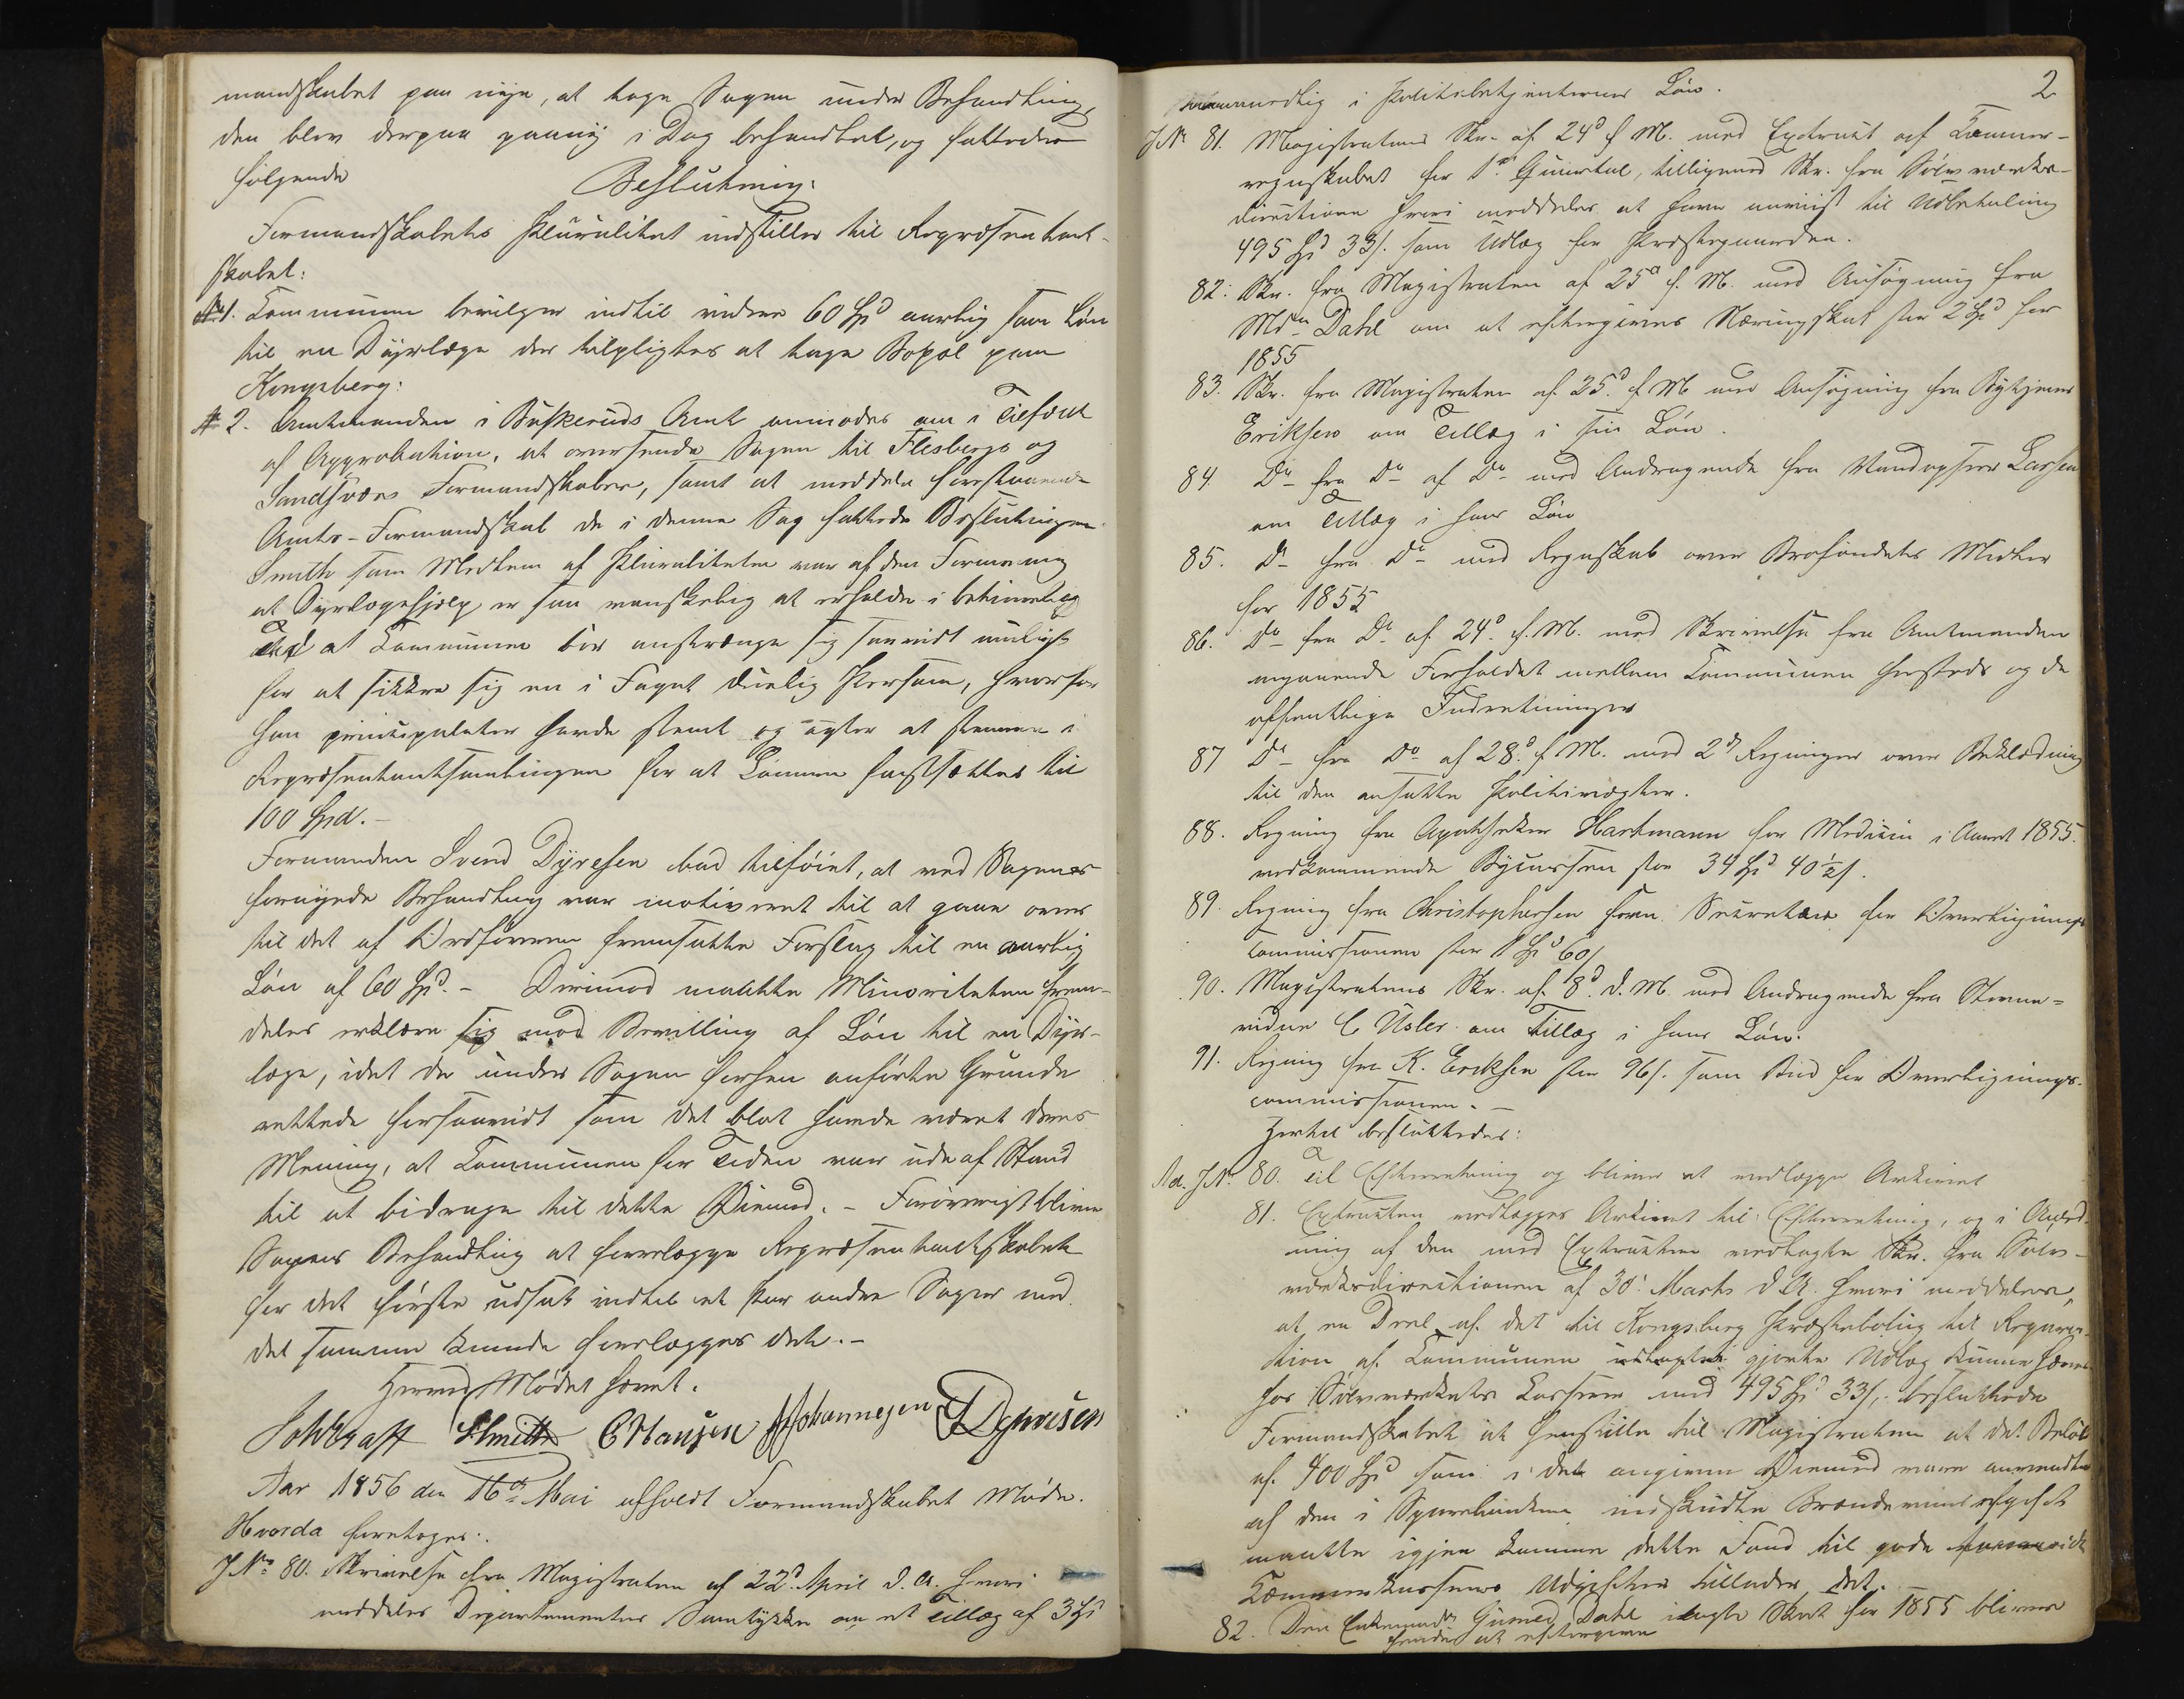 mandskabet paa nye, at tage Sagen under Behandling,
den blev derpaa paany i Dag behandlet, og fattedes
følgende Beslutning:
Formandskabets Pluralitet indstiller til Repræsentant-
skabet:
No 1. Communen bevilger indtil videre 60 Spd aarlig som Løn
til en Dyrlæge der tilpligtes at tage Bopæl paa
Kongsberg:
2. Amtmanden i Buskeruds Amt anmodes om i Tilfælde
af Approbation, at oversende Sagen til Flesbergs og
Sandsværs Formandskaber, samt at meddele forestaaende
Amts-Formandskab de i denne Sag fattede Beslutninger.
Smith som Medlem af Pluraliteten var af den Formening
at Dyrlægehjælp er saa vanskelig at erholde i betimelig
Tid at Communen bør anstrænge sig saavidt muligt
for at sikkre sig en i Faget duelig Person, hvorfor
han principaliter havde stemt og agter at stemme i
Repræsentantsamlingen for at Lønnen fastsættes til
100 Spd.-
Formanden Svend Dyresen bad tilføiet, at ved Sagens
fornyede Behandling var motiveret til at gaae over
til det af Ordføreren fremsatte Forslag til en aarlig
Løn af 60 Spd.- Derimod maatte Minoriteten frem-
deles erklære sig mod Bevilling af Løn til en Dyr-
læge, idet de under Sagen forhen anførte Grunde
rettede forsaavidt som det blot havde været deres
Mening, at Communen for Tiden var ude af Stand
til at bidrage til dette Øiemed.- Forøvrigt bliver
Sagens Behandling at forelægge Repræsentantskabet
for det første udsat indtil et Par andre Sager med
det samme kunde forelægges dette.-
Hermed Mødet hævet.
Smith C Hansen Johannesen S Dyresen
Aar 1856 den 16de Mai afholdt Formandskabet Møde.
Hvorda foretoges:
J No 80. Skrivelse fra Magistraten af 22d April d. A. hvori
meddeles Departementets Samtykke om et Tillæg af 3 Spd
2
maanedlig i Politibetjenternes Løn.
J No 81. Magistratens Skr. af 24d f. M. med Extract af Kæmner-
regnskabet for 1ste Quartal, tilligemed Skr. fra Sølvværks-
directionen hvori meddeles at have anviist til Udbetaling
495 Spd 33 s. som Udlæg for Præstegaarden.
82. Skr. fra Magistraten af 25d f. M. med Ansøgning fra
Mdm Dahl om at eftergives Næringsskat stor 2 Spd for
1855
83. Skr. fra Magistraten af 25d f. M. med Ansøgning fra Bytjener
Eriksen om Tillæg i sin Løn.
84. Do fra Do af Do med Andragende fra Vandopsyn Larsen
om Tillæg i hans Løn
85. Do fra Do med Regnskab over Brofondets Midler
for 1855
86. Do fra Do af 24d f. M. med Skrivelse fra Amtmanden
angaaende Forholdet mellem Communen hersteds og de
offentlige Indretninger
87 Do fra Do af 28d f. M. med 2de Regninger over Beklædning
til den ansatte Politivægter.
88. Regning fra Apotheker Hartmann for Medicin i Aaret 1855.
vedkommende Bycassen stor 34 Spd 40½ s.
89. Regning fra Christophersen som Secretær for Overlignings
Commissionen stor 1 Spd 60 s
90. Magistratens Skr. af 8d d. M. med Andragende fra Stevne-
vidne C Usler om Tillæg i hans Løn.
91. Regning fra K. Eriksen stor 96 s. som Bud for Overlignings-
commissionen.-
Hertil besluttedes:
Ad. J No 80. Til Efterretning og bliver at vedlægge Arkivet
81. Extracten vedlægges Arkivet til Efterretning, og i Anled-
ning af den med Extracten vedlagte Skr. fra Sølv-
værksdirectionen af 30. Marts d. A. hvori meddeles,
at en Deel af det til Kongsberg Præstebolig til Repara-
tion af Communen gjorte Udlæg kunne hæves
hos Sølvværkets Casserer med 495 Spd 33 s., besluttede
Formandskabet at henstille til Magistraten at det Beløb
af 400 Spd som i det angivne Øiemed være anvendte
af den i Sparebanken indskudte Brændeviinsafgift
maatte igjen komme dette Fond til gode forsaavidt
Kæmnerkassens Udgifter tillader det.
82. Den Enkemadme Dahl ilagte Skat for 1855 bliver
hende at eftergive